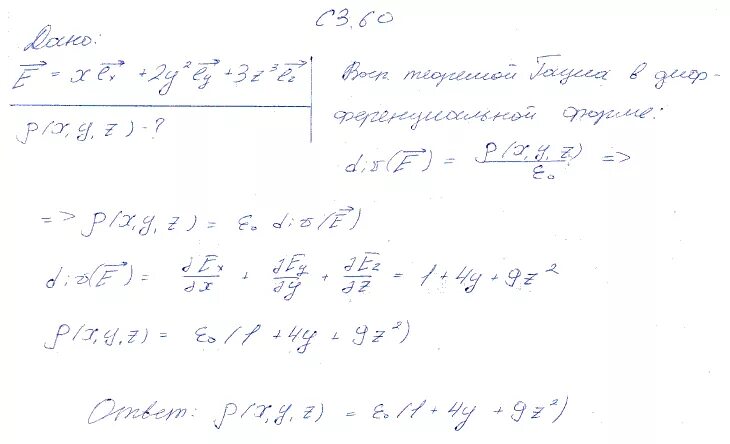 С3.60
Дано:
E⃗ = x e⃗x + 2y² e⃗y + 3z³ e⃗z
ρ(x, y, z) - ?
Восп. теоремой Гаусса в диф-
ференциальной форме:
div(E⃗) = ρ(x, y, z)/ε₀ =>
=> ρ(x, y, z) = ε₀ div(E⃗)
div(E⃗) = ∂Ex/∂x + ∂Ey/∂y + ∂Ez/∂z = 1 + 4y + 9z²
ρ(x, y, z) = ε₀ (1 + 4y + 9z²)
Ответ: ρ(x, y, z) = ε₀ (1 + 4y + 9z²)